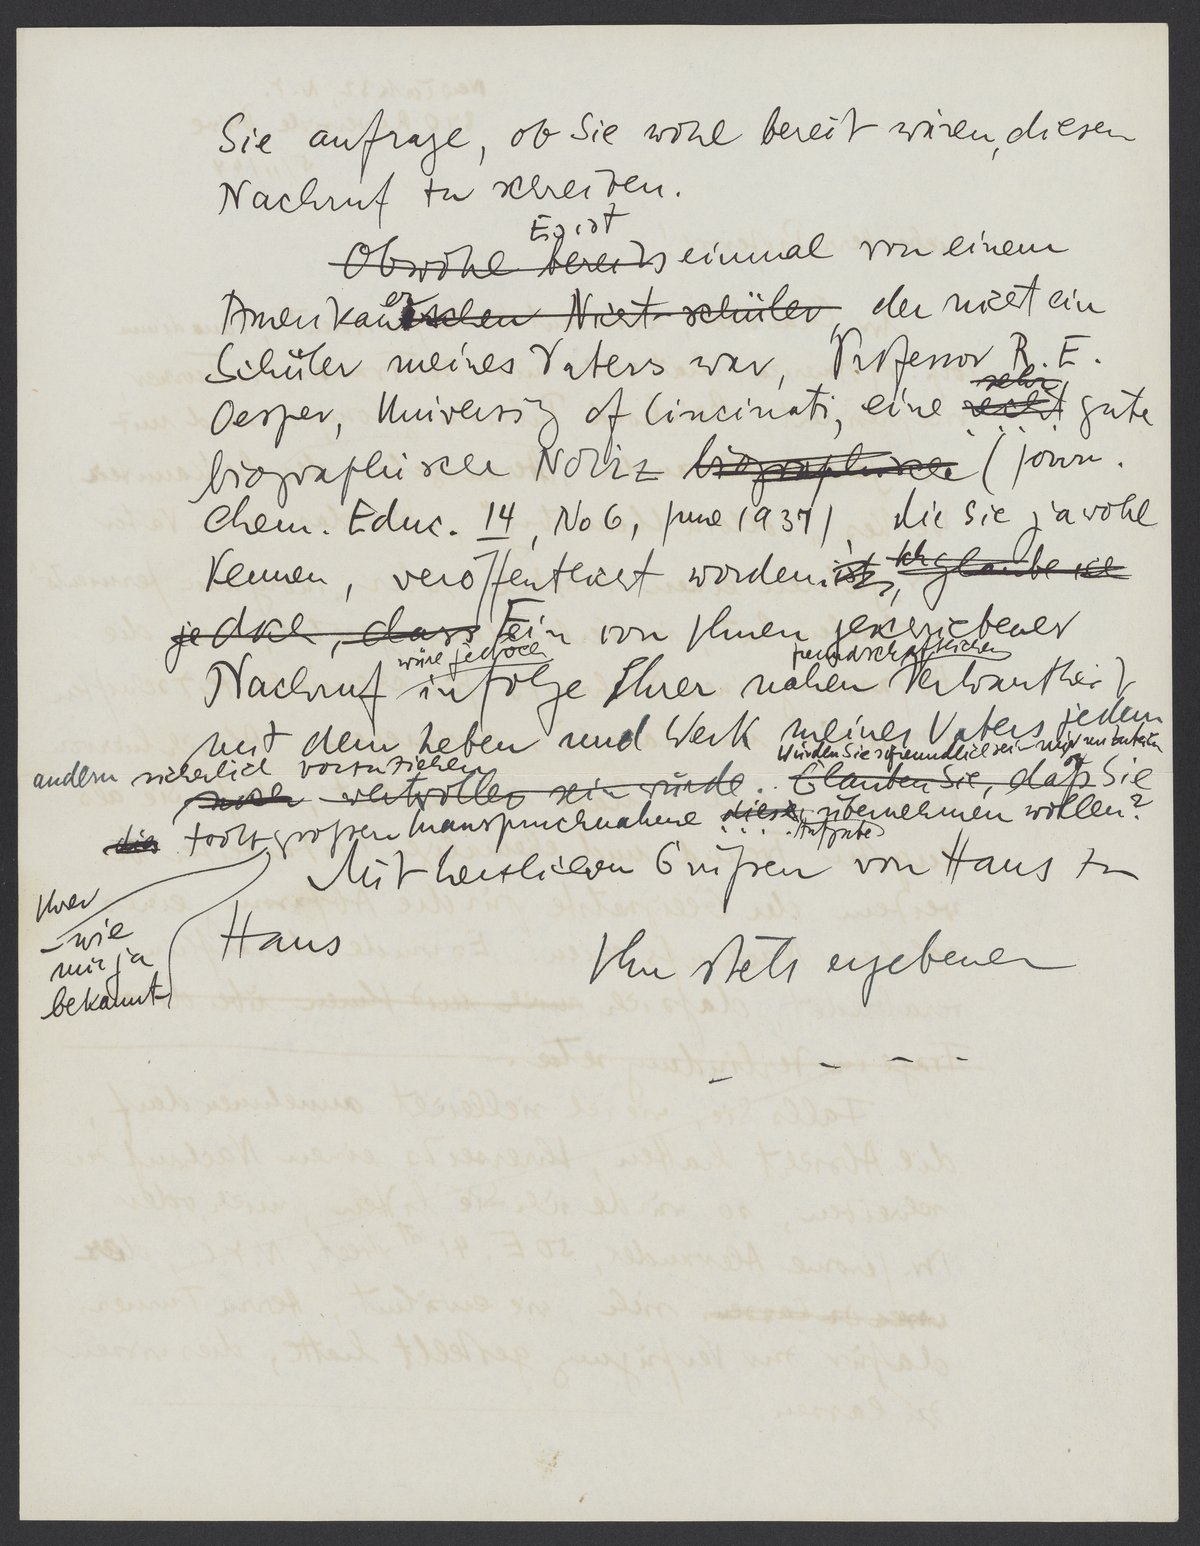 Sie anfrage, ob Sie wohl bereit wären, diesen
Nachruf zu schreiben.
Es ist
Obwohl bereits einmal von einem
Amerikanerischen Nicht-schüler, der nicht ein
Schüler meines Vaters war, Professor R. E.
sehr
Oesper, University of Cincinati, eine recht gute
biographische Notiz biographische (Journ.
Chem. Educ. 14, No 6, June 1937), die Sie ja wohl
kennen, veröffentlicht worden ist, ich glaube ich
jedoch, dass Ein von Ihnen geschriebener
wäre jedoch freundschaftlichen
Nachruf infolge Ihrer nahen Verwantheit
mit dem Leben und Werk meines Vaters jedem
andern sicherlich vorzuziehen
Würden Sie so freundlich sein mir mitzuteilen
noch wertvoller sein würde. Glauben Sie, daß Sie
die trotz grossen Inanspruchnahme diese übernehmen wollen?
Aufgabe
Ihrer
- wie
mir ja
bekannt -
Mit herzlichen Grüßen von Haus zu
Haus
Ihr stets ergebener